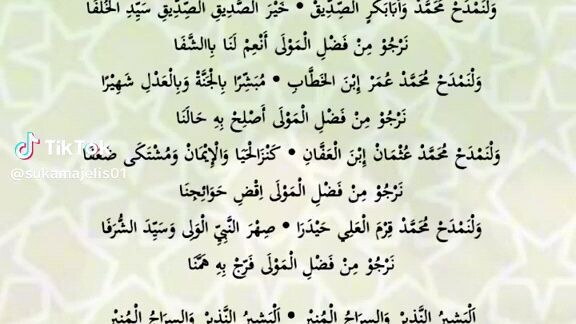 وَلْنَمْدَحْ مُحَمَّدْ وَأَبَابَكَرٍ الصِّدِّيقْ • خَيْرَ الصَّدِيقِ الصِّدِّيقِ سَيِّدِ الْخُلَفَا
نَرْجُوْ مِنْ فَضْلِ الْمَوْلَى أَنْعِمْ لَنَا بِاالشَّفَا
وَلْنَمْدَحْ مُحَمَّدْ عُمَرْ إِبْنَ الخَطَّابِ • مُبَشَّرًا بِالْجَنَّةْ وَبِالْعَدْلِ شَهِيْرًا
نَرْجُوْ مِنْ فَضْلِ الْمَوْلَى أَصْلِحْ بِهِ حَالَنَا
وَلْنَمْدَحْ مُحَمَّدْ عُثْمَانْ إِبْنَ الْعَفَّانِ • كَنْزَالْحَيَا وَالْإِيْمَانْ وَمُشْتَكَى ضَعْفَا
نَرْجُوْ مِنْ فَضْلِ الْمَوْلَى اِقْضِ حَوَائِجِنَا
وَلْنَمْدَحْ مُحَمَّدْ قِرْمَ الْعَلِي حَيْدَرَا • صِهْرَ النَّبِيّ الْوَلِى وَسَيِّدَ الشُّرَفَا
نَرْجُوْ مِنْ فَضْلِ الْمَوْلَى فَرِّجْ بِهِ هَمَّنَا
اَلْبَشِيرُ النَّذِيرْ وَالسِرَاجُ الْمُنِيْر • اَلْبَشِيرُ النَّذِيرْ وَالسِرَاجُ الْمُنِيْر
TikTok
@sukamajelis01